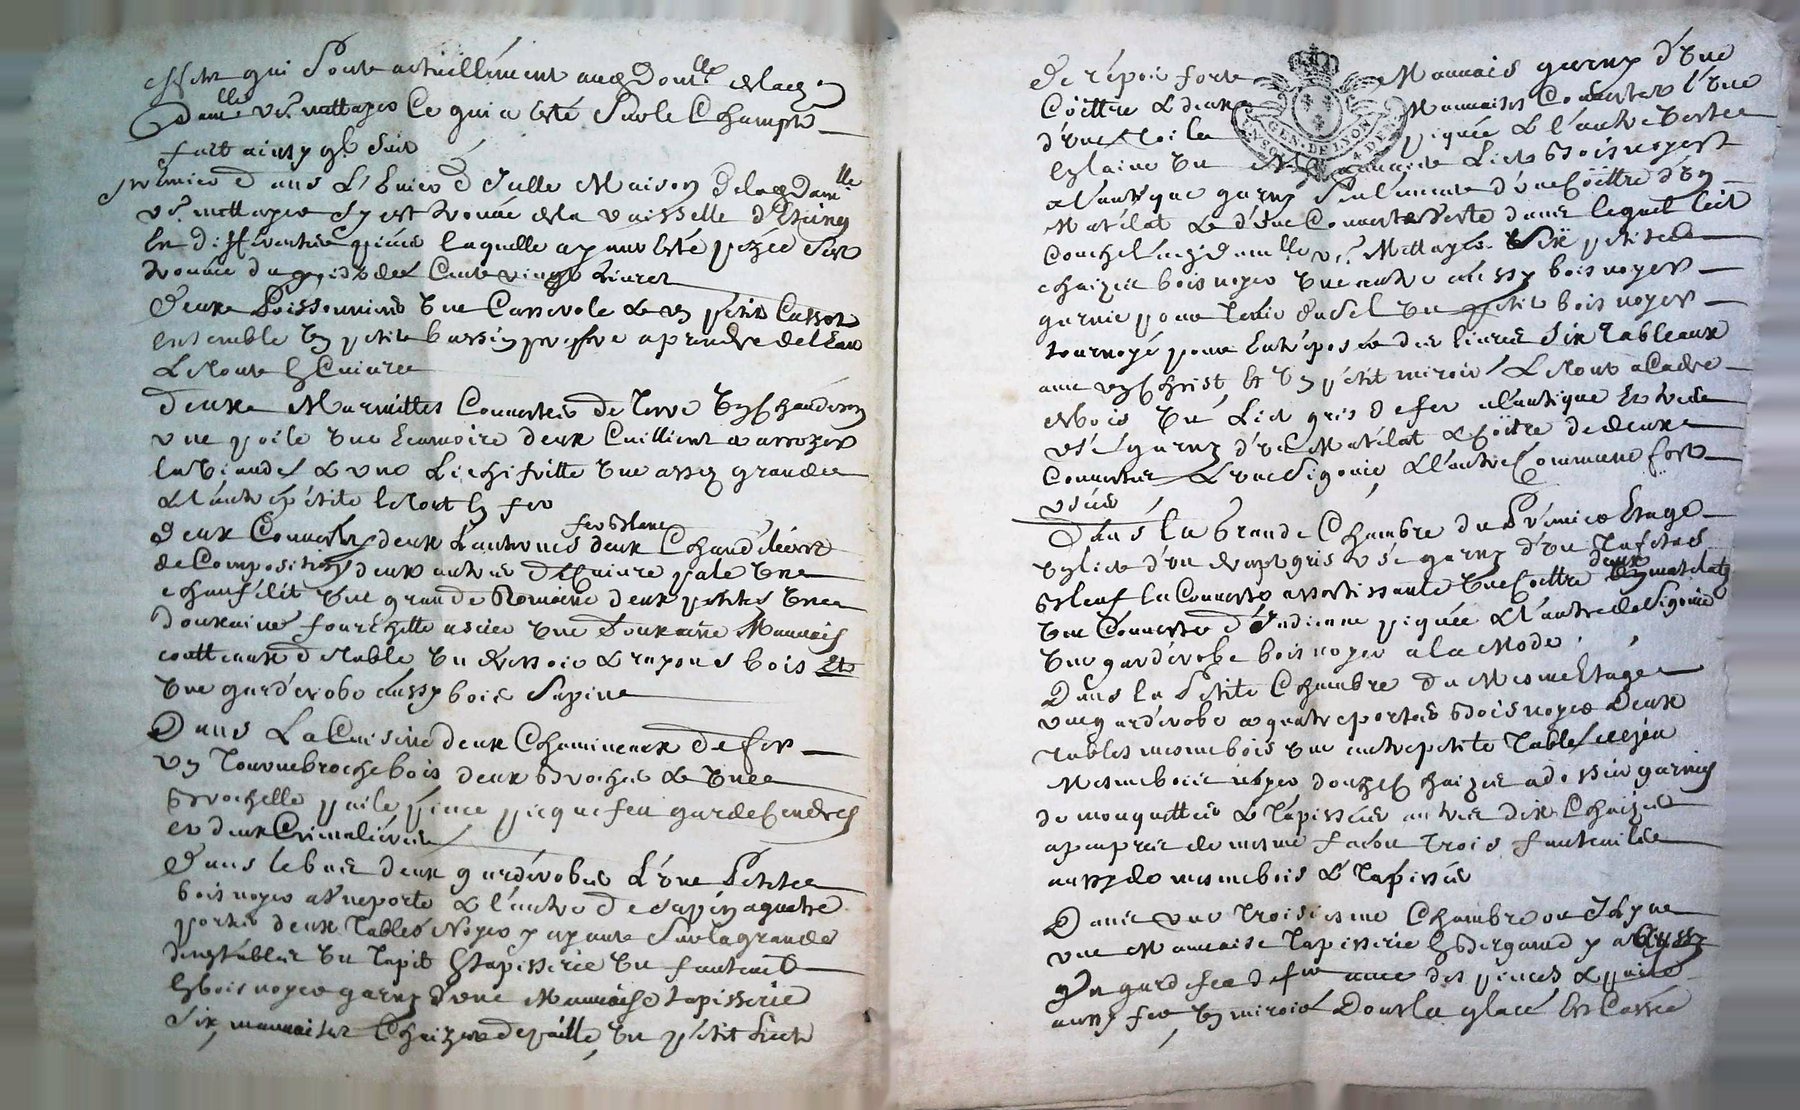 effets qui sont actuellement aud. domlle de lad.
Damlle ve. mattayeo Ce qui a esté Sur le Champts
fait ainsy qt. Suit
premier dans L'Entrée d'Icelle Maison de lad. Damlle
ve. mattayeo S'y est trouvée de la vaisselle d'Etaing
en différantes pièces laquelle ayant esté pezée s'est
trouvée du poids de Cent vingt Livres
deux Poissonnieres Une Casserole & un petit Cassot
ensemble un petit bassin propre a prendre de l'Eau
Le tout En Cuivre
deux Marmittes Couvertes de terre Un Chauderon
une poile Une Ecumoire deux Cuilliere a arrozer
la Viande & une Lichifritte Une assez grande
& l'autre petite le tout En fer
deux Couverts deux Lanternes fer blanc deux Chandeliers
de Composition deux autres de Cuivre pale Une
chauflit Une grande Romaine deux petites Une
douzaine fourchette acier Une Douzaine Mauvais
couteaux de table Un dressoir & rayons bois
Une garderobe aussy bois Sapine
Dans La Cuisine deux Chemineaux de fer
un Tournebroche bois deux Broches & Une
Brochette paile pince picquefeu garde Cendres
et deux Crémalières
Dans le bas deux garderobes L'Une Petite
bois noyer a Une porte & l'autre de sapin a quatre
portes deux Tables Noyer y ayant Sur la grande
des tables Un Tapit En tapisserie Un fauteuil
En bois noyer garny d'une Mauvaise tapisserie
Six mauvaises Chaizes de paille, Un petit Lict
De répos forts Mauvais garny d'Une
Coëttre & deux Mauvaises Couvertes l'Une
d'Une Toile piquée & l'autre Verte
En laine Un Mauvais Lict Bois noyer
a l'antique garny Seulement d'Une Coëttre d'Un
Matélat & d'Une Couverte Verte dans lequel lict
Couche lad. damelle ve. Mattayeo Six petites
chaizes bois noyer Une autre aussy bois noyer
garnie pour Tenir du Sel Un petit bois noyer
tournoyé pour Entréposée des livres Six Tableaux
avec un Christ et Un petit miroir Le tout a Cadre
de bois Un Lict gris de fer a l'antique Et verde
usé garny d'Un Matélat & Coëttre de deux
Couvertes L'Une Ligonie & l'autre Commune fort
usées
Dans la Grande Chambre du Premier Etage
Un lict d'Un drapt gris usé garny d'Un Taffetas
Bleuf la Couverte assortissante Une Coëttre deux matelats
Une Couverte d'Indienne piquée & l'autre de Ligonie
Une garderobe bois noyer a la Mode
Dans la Petite Chambre du Mesme Etage
Une garderobe a quatre portes Bois noyer Deux
Tables mesme bois Une autre petite Table a jeu
Mesme bois noyer douze Chaizes a dossier garnies
de mouquettes & Tapisséries autres dix Chaizes
a peu prez de mesme facon Trois fauteuilles
aussy de mesme bois & Tapissérie
Dans une Troisiesme Chambre ou Il y a
une Mauvaise Tapisserie En Bergame y a aussy
Un gard feu de fer avec des pinces & paile
aussy fer Un miroir Dont la glace Est Cassée
GEN. DE LYON